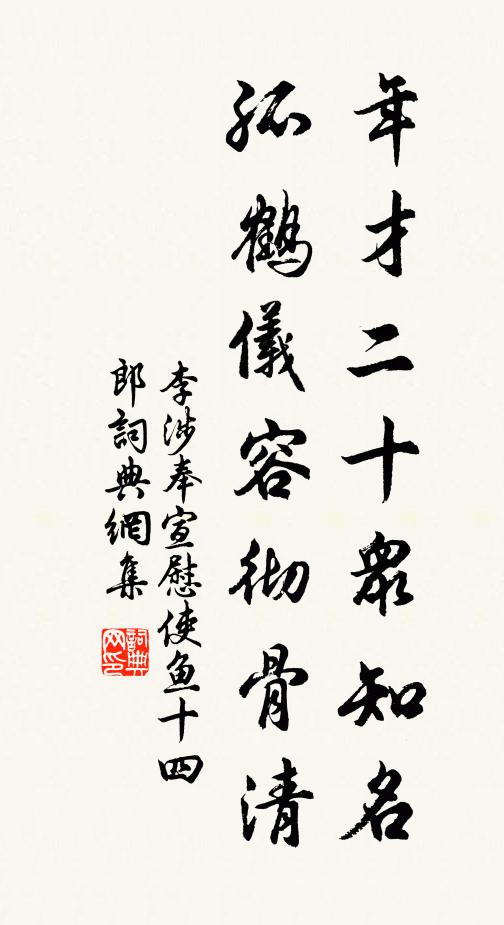 年才二十眾知名
孤鶴儀容彻骨清
李涉奉宣慰使鱼十四
郎詞典網集
詞典网印